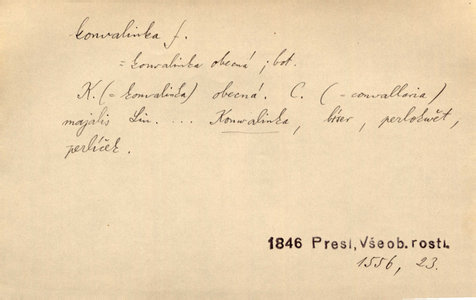 konvalinka f.
= konvalinka obecná ; bot.
K. (= konvalinka) obecná. C. (= convallaria)
majalis Lin. ... Konwalinka, , perlokwět,
perlíček.
1846 Presl, Všeob. rostl.
1556, 23.